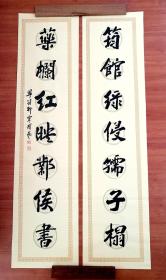 筠館綠侵孺子榻
藥欄紅映鄴侯書